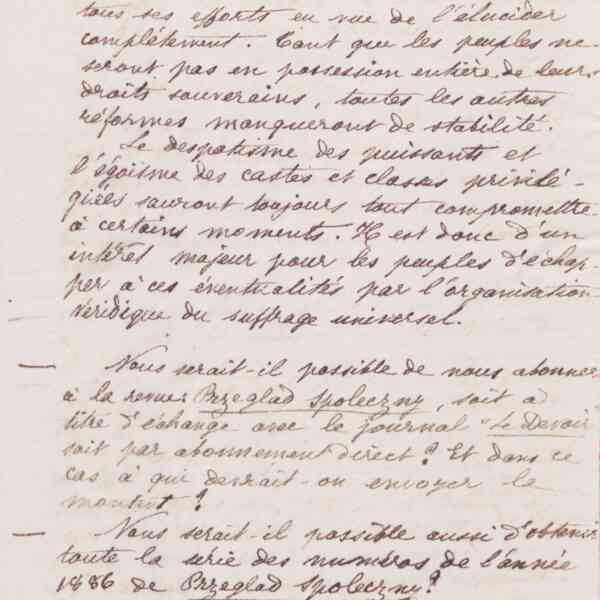 tous ses efforts en vue de l'élucider
complètement. Tant que les peuples ne
seront pas en possession entière de leurs
droits souverains, toutes les autres
réformes manqueront de stabilité.
Le despotisme des puissants et
l'égoïsme des castes et classes privilé-
giées sauront toujours tout compromettre
à certains moments. Il est donc d'un
intérêt majeur pour les peuples d'échap-
per à ces éventualités par l'organisation
véridique du suffrage universel.
— Nous serait-il possible de nous abonner
à la revue: Przeglad Spoleczny, soit à
titre d'échange avec le journal "Le Devoir
soit par abonnement direct? Et dans ce
cas à qui devrait-on envoyer le
montant?
— Nous serait-il possible aussi d'obtenir
toute la série des numéros de l'année
1886 de Przeglad Spoleczny?